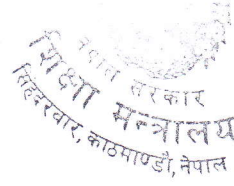 नेपाल सरकार
शिक्षा मन्त्रालय
सिंहदरवार, काठमाण्डौ, नेपाल